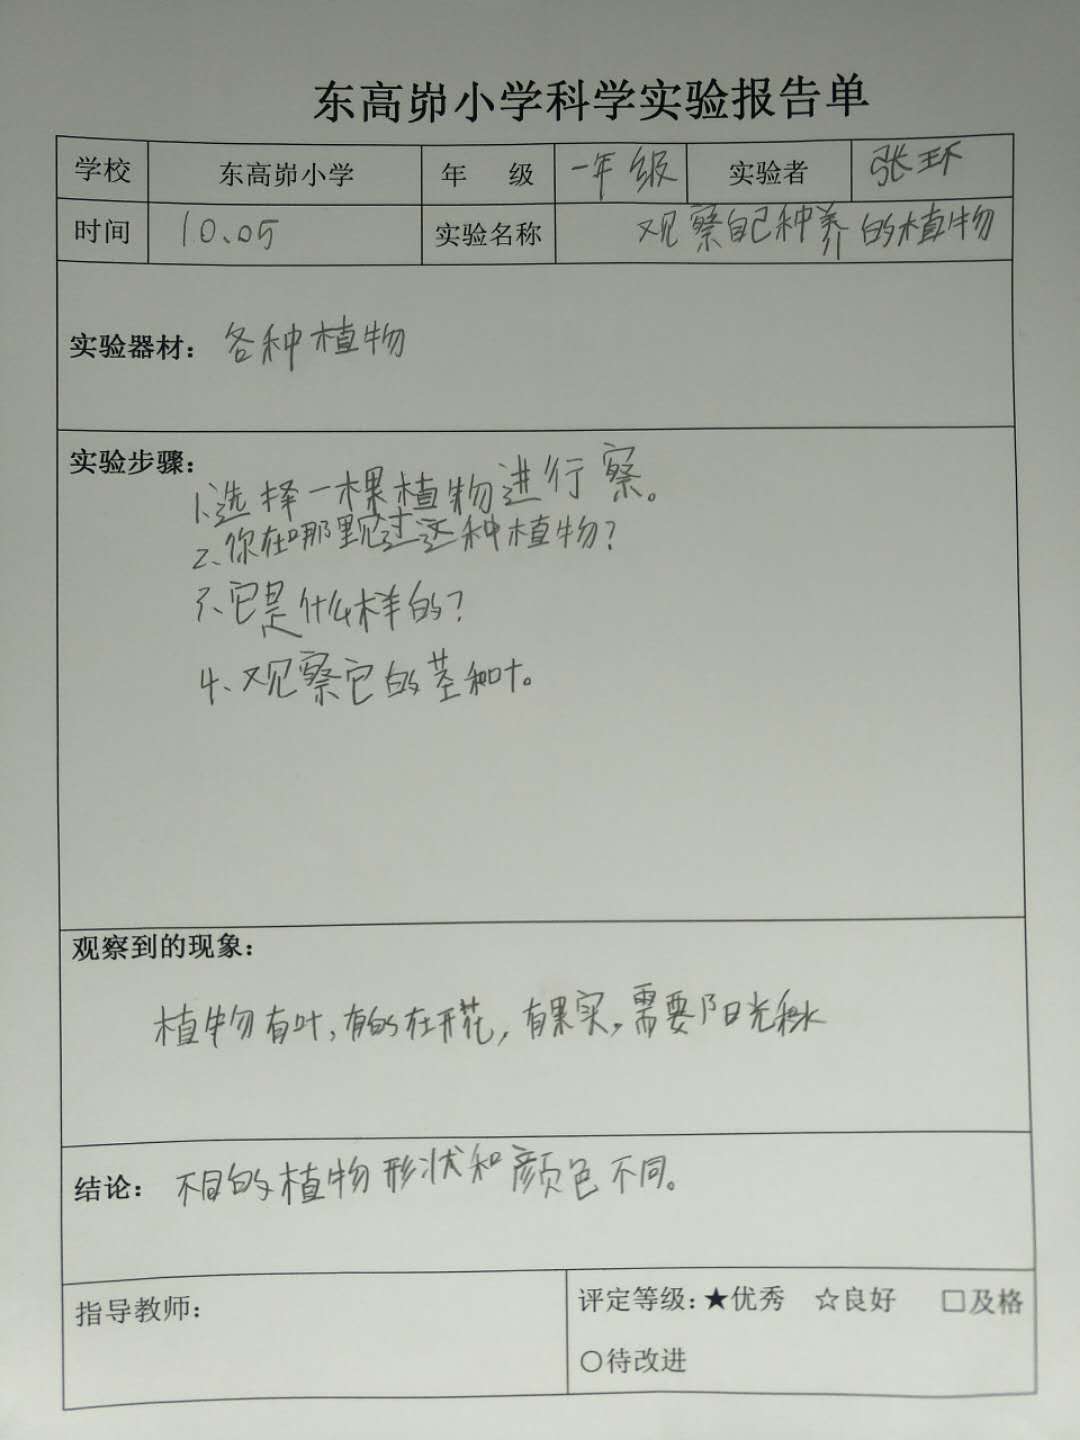 东高峁小学科学实验报告单
学校 东高峁小学 年 级 一年级 实验者 张环
时间 10.05 实验名称 观察自己种养的植物
实验器材： 各种植物
实验步骤：
1.选择一棵植物进行察。
2、你在哪里见过这种植物?
3、它是什么样的?
4、观察它的茎和叶。
观察到的现象：
植物有叶,有的在开花,有果实,需要阳光和水
结论： 不同的植物形状和颜色不同。
指导教师： 评定等级: ★优秀 ☆良好 □及格
○待改进